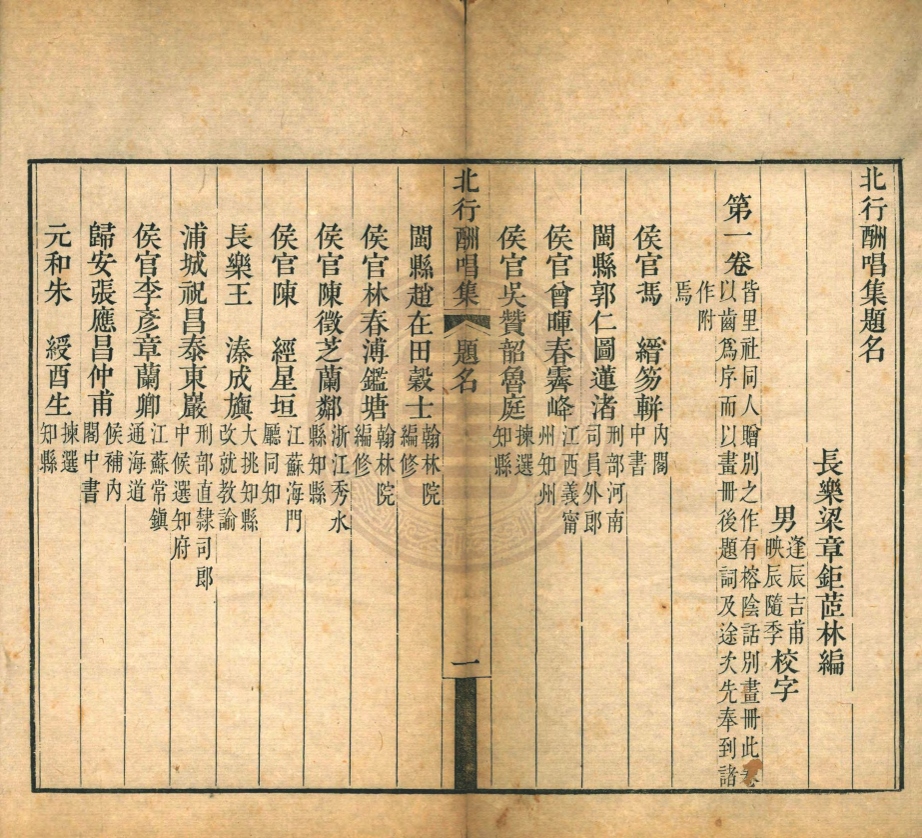 北行酬唱集題名
長樂梁章鉅茝林編
男逢辰吉甫映辰隨季校字
第一卷皆里社同人贈別之作有榕陰話別畫冊此卷以齒爲序而以畫冊後題詞及途次先奉到諸作附焉
侯官馮　縉笏軿內閣中書
閩縣郭仁圖蓮渚刑部河南司員外郎
侯官曾暉春霽峰江西義甯州知州
侯官吳贊韶魯庭揀選知縣
北行酬唱集　題名　一
閩縣趙在田穀士翰林院編修
侯官林春溥鑑塘翰林院編修
侯官陳徵芝蘭鄰浙江秀水縣知縣
侯官陳　經星垣江蘇海門廳同知
長樂王　溱成旟大挑知縣改就教諭
浦城祝昌泰東巖刑部直隸司郎中候選知府
侯官李彥章蘭卿江蘇常鎮通海道
歸安張應昌仲甫候補內閣中書
元和朱　綬酉生揀選知縣